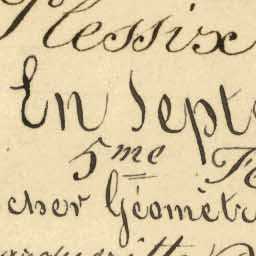 Plessix
En Septe
5me Fe
cher Géomètr